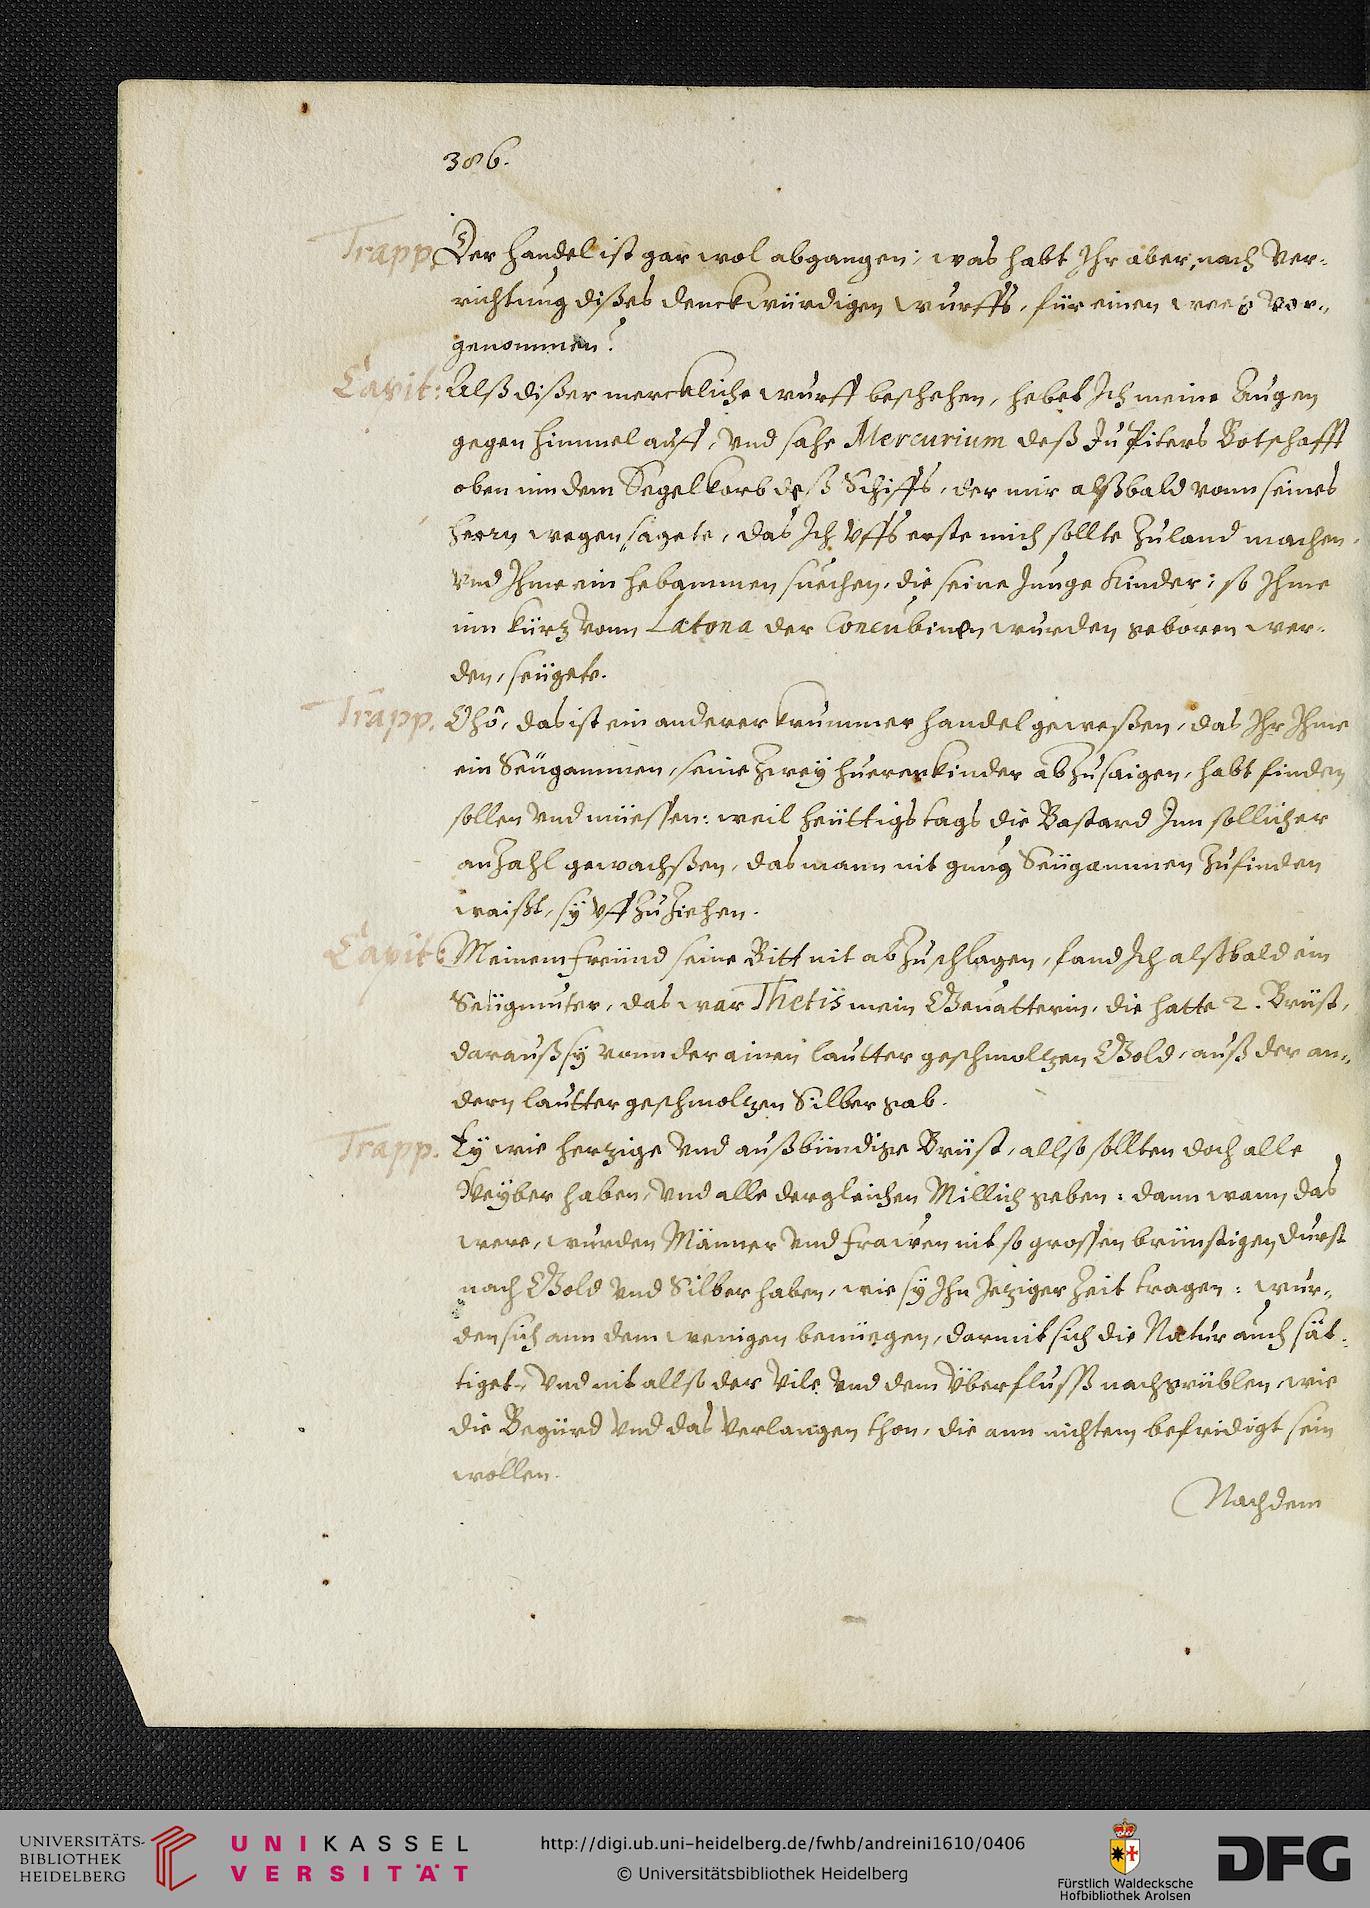 386.
Trapp. Der handel ist gar wol abgangen; was habt Ihr aber, nach Ver-
richtung dißes denckwürdigen wurffs, für einen weeg vor-
genommen?
Capit: Alß dißer merckliche wurff beschehen, hebet Ich meine Augen
gegen himmel auff, vnd sahe Mercurium deß Jupiters Botschafft
oben inn dem Segelkorb deß Schiffs, der mir alßbald vonn seines
herrn wegen sagete, das Ich vffs erste mich sollte zuland machen,
vnd Ihme ein hebammen suechen, die seine Junge Kinder; so Ihme
inn kürtz vonn Latona der Concubinen wurden geboren wer-
den, seügete.
Trapp. Ohô, das ist ein anderer krummer handel geweßen, das Ihr Ihme
ein Seügammen, seine zwey huerenkinder abzusaigen, habt finden
sollen vnd müessen: weil heüttigs tags die Bastard Inn sollicher
anzahl gewachßen, das mann nit gnug Seügammen zufinden
waißt, sÿ vffzuziehen.
Capit: Meinem freünd seine Bitt nit abzuschlagen, fand Ich alßbald ein
Seügmuter, das war Thetis mein Gevatterin, die hatte 2. Brüst,
darauß sÿ vonn der ainen lautter geschmoltzen Gold, auß der an-
dern lautter geschmoltzen Silber gab.
Trapp. Eÿ wie hertzige vnd außbündige Brüst, allso sollten doch alle
Weÿber haben, vnd alle dergleichen Millich geben: dann wann das
were, wurden Männer vnd frawen nit so grossen brünstigen durst
nach Gold vnd Silber haben, wie sÿ Ihn Jetziger Zeit tragen: wur-
den sich ann dem wenigen benüegen, darmit sich die Natur auch sät-
tiget, vnd nit allso der vile vnd dem Überfluß nachgrüblen, wie
die Begürd vnd das Verlangen thon, die ann nichtem befridigt sein
wollen.
Nachdem
UNIVERSITÄTS-
BIBLIOTHEK
HEIDELBERG
UNIKASSEL
VERSITÄT
http://digi.ub.uni-heidelberg.de/fwhb/andreini1610/0406
© Universitätsbibliothek Heidelberg
Fürstlich Waldecksche
Hofbibliothek Arolsen
DFG